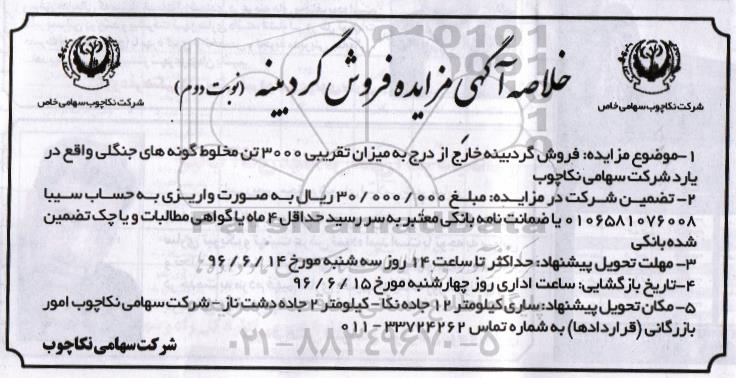 خلاصه آگهی مزایده فروش گردبینه (نوبت دوم)
شرکت نکاچوب سهامی خاص
شرکت نکاچوب سهامی خاص
۱-موضوع مزایده: فروش گردبینه خارج از درج به میزان تقریبی ۳۰۰۰ تن مخلوط گونه های جنگلی واقع در
یارد شرکت سهامی نکاچوب
۲- تضمین شرکت در مزایده: مبلغ ۳۰/۰۰۰/۰۰۰ ریال به صورت واریزی به حساب سیبا
۰۱۰۶۵۸۱۰۷۶۰۰۸ یا ضمانت نامه بانکی معتبر به سر رسید حداقل ۴ ماه یا گواهی مطالبات و یا چک تضمین
شده بانکی
۳- مهلت تحویل پیشنهاد: حداکثر تا ساعت ۱۴ روز سه شنبه مورخ ۹۶/۶/۱۴
۴-تاریخ بازگشایی: ساعت اداری روز چهارشنبه مورخ ۹۶/۶/۱۵
۵- مکان تحویل پیشنهاد: ساری کیلومتر ۱۲ جاده نکا - کیلومتر ۲ جاده دشت ناز - شرکت سهامی نکاچوب امور
بازرگانی (قراردادها) به شماره تماس ۳۳۷۲۴۲۶۲-۰۱۱
شرکت سهامی نکاچوب
ParsNamadData
۰۲۱-۸۸۳۴۹۶۷۰-۵